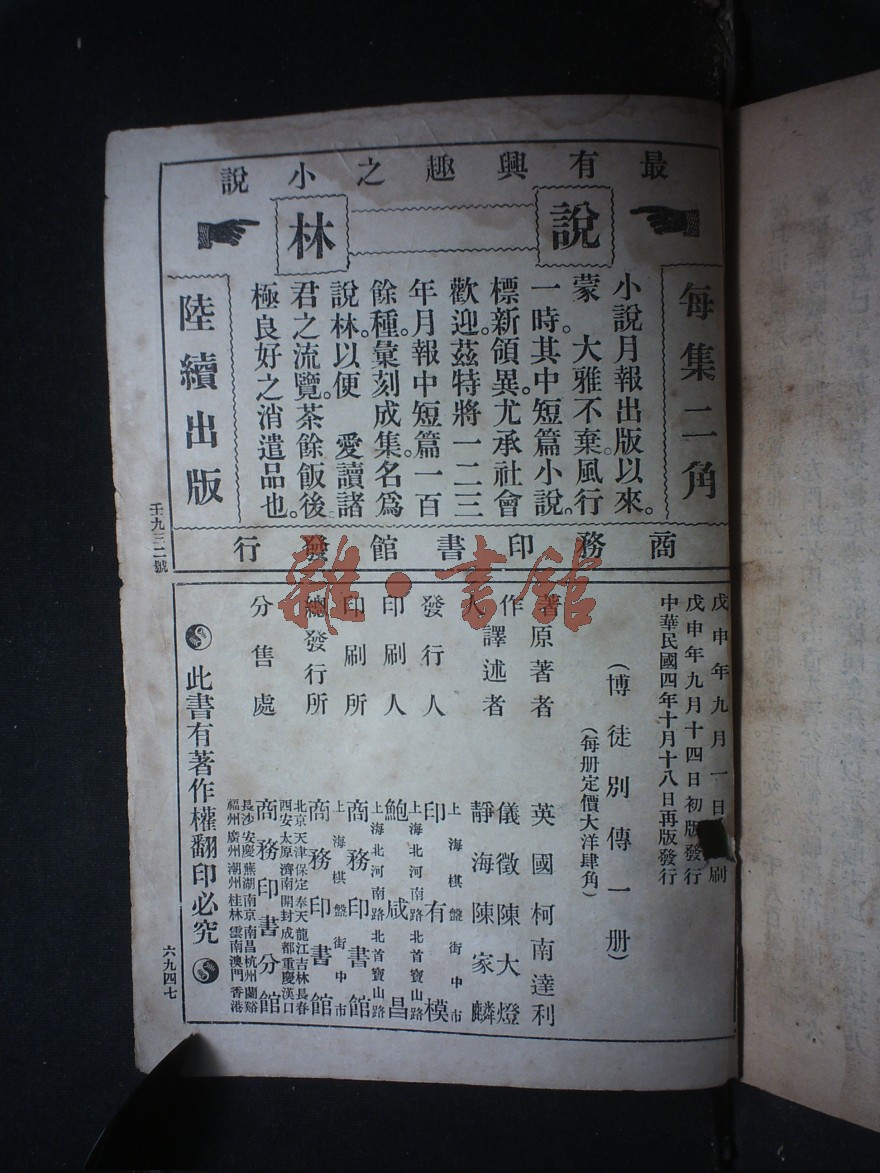 最有興趣之小說
說林
每集二角
小說月報出版以來。
蒙 大雅不棄。風行
一時。其中短篇小說。
標新領異。尤承社會
歡迎。茲特將一二三
年月報中短篇一百
餘種。彙刻成集。名爲
說林。以便 愛讀諸
君之流覽。茶餘飯後
極良好之消遣品也。
陸續出版
商務印書館發行
壬九三二號
戊申年九月一日 刷
戊申年九月十四日初版發行
中華民國四年十月十八日再版發行
(博徒別傳一册)
(每册定價大洋肆角)
著作人
原著者 英國柯南達利
譯述者 儀徵陳大燈
靜海陳家麟
發行人 上海棋盤街中市
印有模
印刷人 上海北河南路北首寶山路
鮑咸昌
印刷所 上海北河南路北首寶山路
商務印書館
總發行所 上海棋盤街中市
商務印書館
分售處 北京天津保定奉天龍江吉林長春
西安太原濟南開封成都重慶漢口
商務印書分館
長沙安慶蕪湖南京南昌杭州蘭谿
福州廣州潮州桂林雲南澳門香港
此書有著作權翻印必究
六九四七
雜·書館